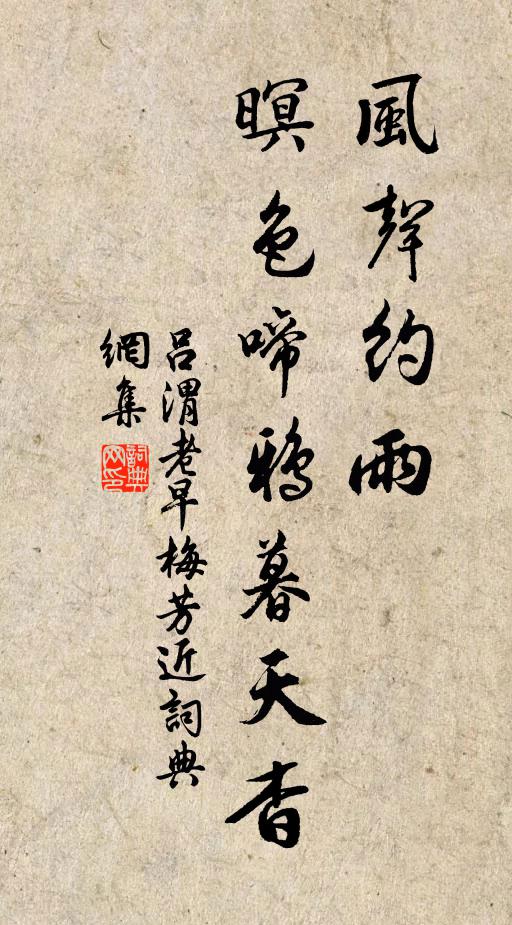 風聲約雨
暝色啼鴉暮天杳
吕渭老早梅芳近詞典
網集
詞典网印